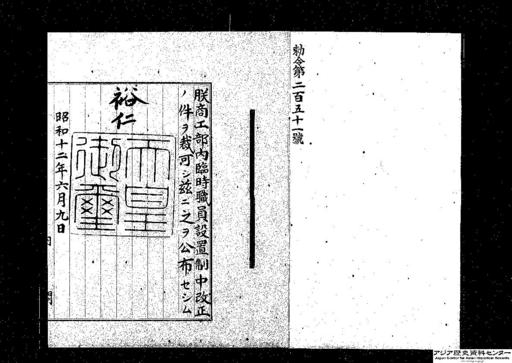 勅令第二百五十一號
朕商工部內臨時職員設置制中改正
ノ件ヲ裁可シ茲ニ之ヲ公布セシム
裕仁
天皇御璽
昭和十二年六月九日
アジア歴史資料センター
Japan Center for Asian Historical Records